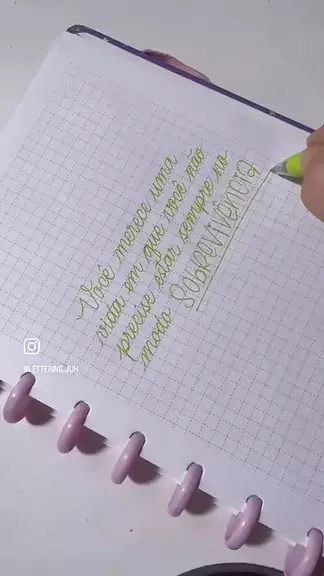 Você merece uma
vida em que você não
precise estar sempre no
modo SOBREVIVÊNCIA
@LETTERING.JUH